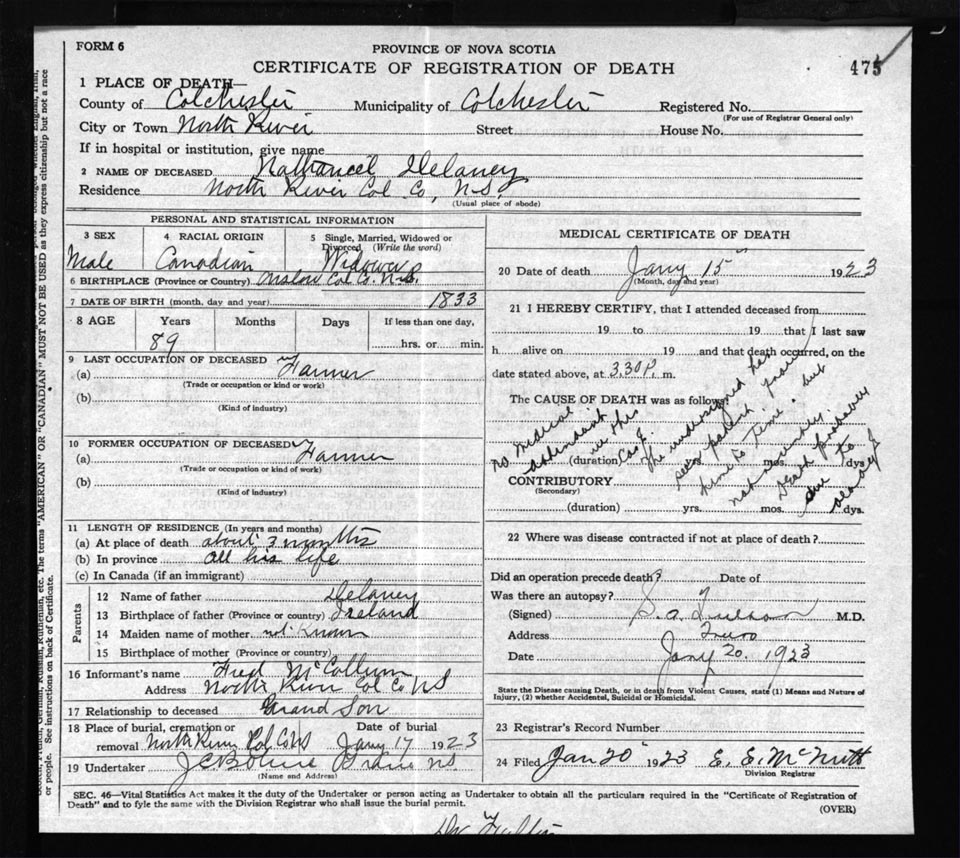 FORM 6
PROVINCE OF NOVA SCOTIA
CERTIFICATE OF REGISTRATION OF DEATH
475
1 PLACE OF DEATH—
County of Colchester Municipality of Colchester Registered No.
(For use of Registrar General only)
City or Town North River Street House No.
If in hospital or institution, give name
2 NAME OF DECEASED Nathaneil Delaney
Residence North River Col. Co, N.S.
(Usual place of abode)
PERSONAL AND STATISTICAL INFORMATION
3 SEX 4 RACIAL ORIGIN 5 Single, Married, Widowed or
Divorced (Write the word)
Male Canadian Widower
6 BIRTHPLACE (Province or Country) Onslow Col Co. N.S.
7 DATE OF BIRTH (month, day and year) 1833
8 AGE Years Months Days If less than one day,
89 hrs. or min.
9 LAST OCCUPATION OF DECEASED
(a) Farmer
(Trade or occupation or kind or work)
(b)
(Kind of industry)
10 FORMER OCCUPATION OF DECEASED
(a) Farmer
(Trade or occupation or kind of work)
(b)
(Kind of industry)
11 LENGTH OF RESIDENCE (In years and months)
(a) At place of death about 3 months
(b) In province all his life
(c) In Canada (if an immigrant)
Parents
12 Name of father Delaney
13 Birthplace of father (Province or country) Ireland
14 Maiden name of mother not known
15 Birthplace of mother (Province or country)
16 Informant's name Fred McCallum
Address North River Col Co NS
17 Relationship to deceased Grand Son
18 Place of burial, cremation or Date of burial
removal North River Col Co NS Jany 17 1923
19 Undertaker
(Name and Address)
MEDICAL CERTIFICATE OF DEATH
20 Date of death Jany 15 1923
(Month, day and year)
21 I HEREBY CERTIFY, that I attended deceased from
19 to 19 that I last saw
h alive on 19 and that death occurred, on the
date stated above, at 3.30 P. m.
The CAUSE OF DEATH was as follows:
no medical
attendant
in this
Case.
The undersigned has
seen patient from
time to time, but
not recently.
Death probably
due to
old age
(duration) yrs. mos. dys
CONTRIBUTORY
(Secondary)
(duration) yrs. mos. dys.
22 Where was disease contracted if not at place of death?
Did an operation precede death? Date of
Was there an autopsy?
(Signed) M.D.
Address Truro
Date Jany 20. 1923
State the Disease causing Death, or in death from Violent Causes, state (1) Means and Nature of
Injury, (2) whether Accidental, Suicidal or Homicidal.
23 Registrar's Record Number
24 Filed Jan 20 1923 E. E. McNutt
Division Registrar
SEC. 46—Vital Statistics Act makes it the duty of the Undertaker or person acting as Undertaker to obtain all the particulars required in the "Certificate of Registration of
Death" and to fyle the same with the Division Registrar who shall issue the burial permit.
(OVER)
or people. See instructions on back of Certificate. The terms "AMERICAN" OR "CANADIAN" MUST NOT BE USED as they express citizenship but not a race